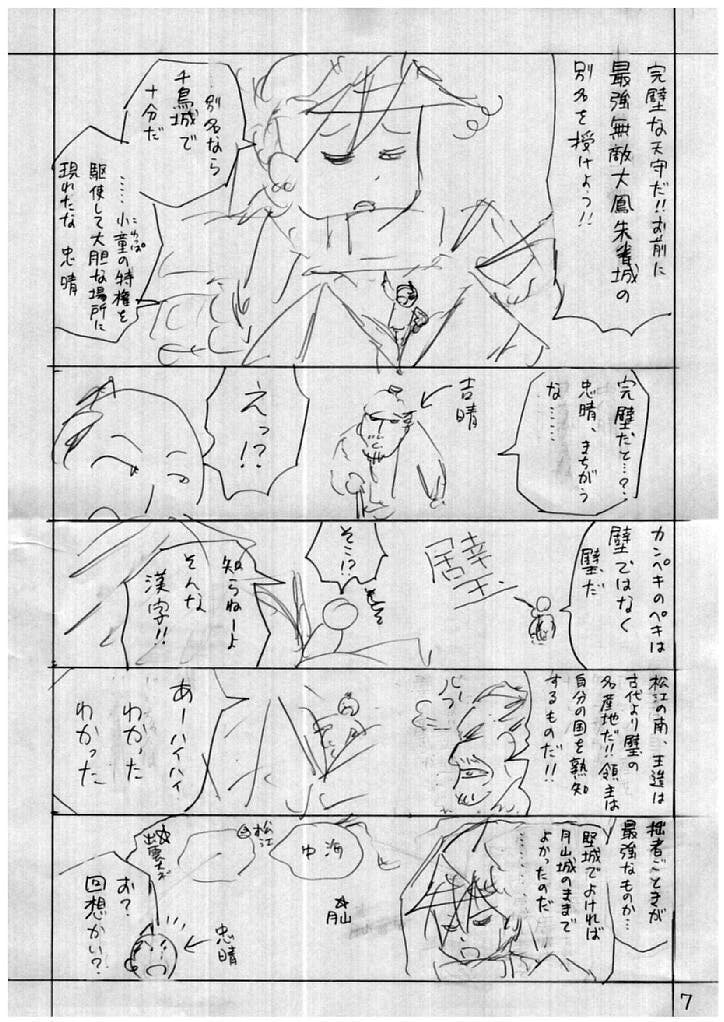 完璧な天守だ!!お前に
最強無敵大鳳朱雀城の
別名を授けよう!!
別名なら
千鳥城で
十分だ
……小童の特権を
こわっぱ
駆使して大胆な場所に
現れたな 忠晴
完壁だと…?
忠晴、まちがう
な……
吉晴
えっ!?
カンペキのペキは
壁ではなく
璧だ
璧
そこ!?
知らねーよ
そんな
漢字!!
松江の南、玉造は
古代より璧の
名産地だ!!領主は
自分の国を熟知
するものだ!!
あーハイハイ
わかった
わかった
拙者ごときが
最強なものか…
堅城でよければ
月山城のままで
よかったのだ
……
中海
松江
出雲大社
月山
忠晴
お?
回想かい?
7